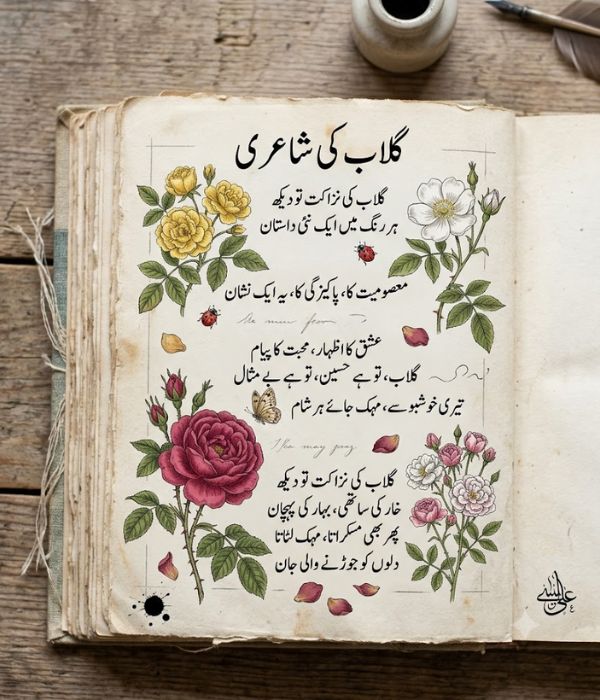 گلاب کی شاعری
گلاب کی نزاکت تو دیکھ
ہر رنگ میں ایک نئی داستان
معصومیت کا، پاکیزگی کا، یہ ایک نشان
عشق کا اظہار، محبت کا پیام
گلاب، تو ہے حسین، تو ہے بے مثال
تیری خوشبو سے، مہک جائے ہر شام
گلاب کی نزاکت تو دیکھ
خار کی ساتھی، بہار کی پہچان
پھر بھی مسکراتا، مہک لٹاتا
دلوں کو جوڑنے والی جان